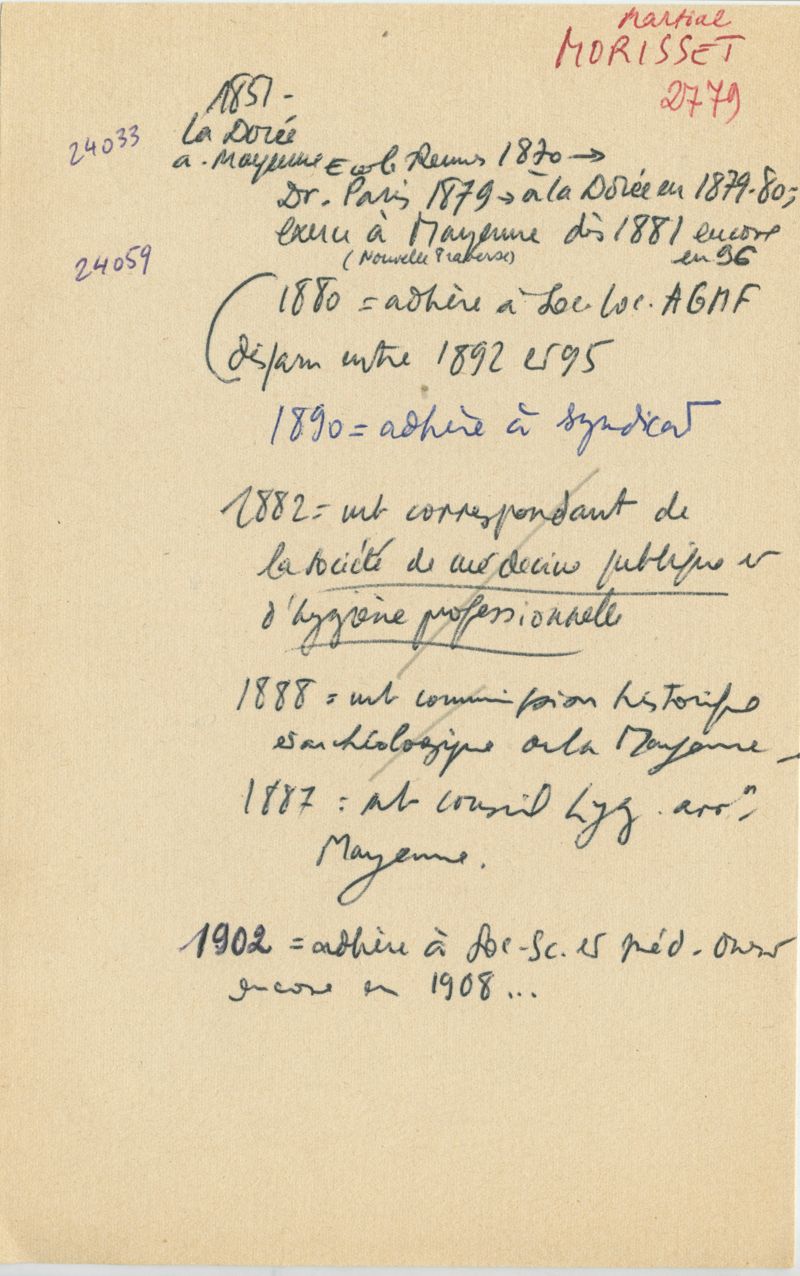 Martial
MORISSET
2779
1851 -
24033
la Dorée
a. Mayenne Ecole Rennes 1870 →
Dr. Paris 1879 → à la Dorée en 1879-80;
exerce à Mayenne dès 1881 encore
(Nouvelle Traverse) en 96
24059
1880 = adhère à Soc. loc. AGMF
disparu entre 1892 et 95
1890 = adhère à syndicat
1882 = mb correspondant de
la société de médecine publique et
d'hygiène professionnelle
1888 = mb commission historique
et archéologique de la Mayenne
1887 : mb conseil hyg. arrᵗ
Mayenne.
1902 = adhère à Soc-Sc. et méd. Ouest
encore en 1908...